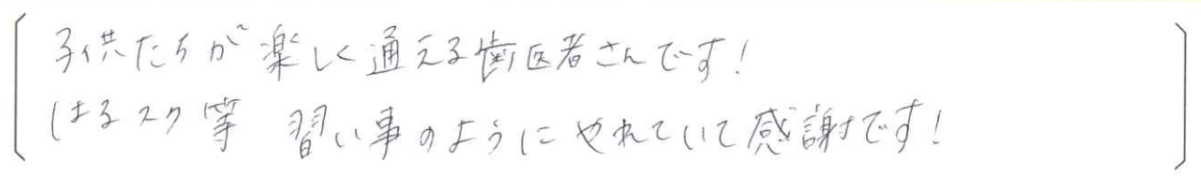 子供たちが楽しく通える歯医者さんです!
はるスク等 習い事のようにやれていて感謝です!